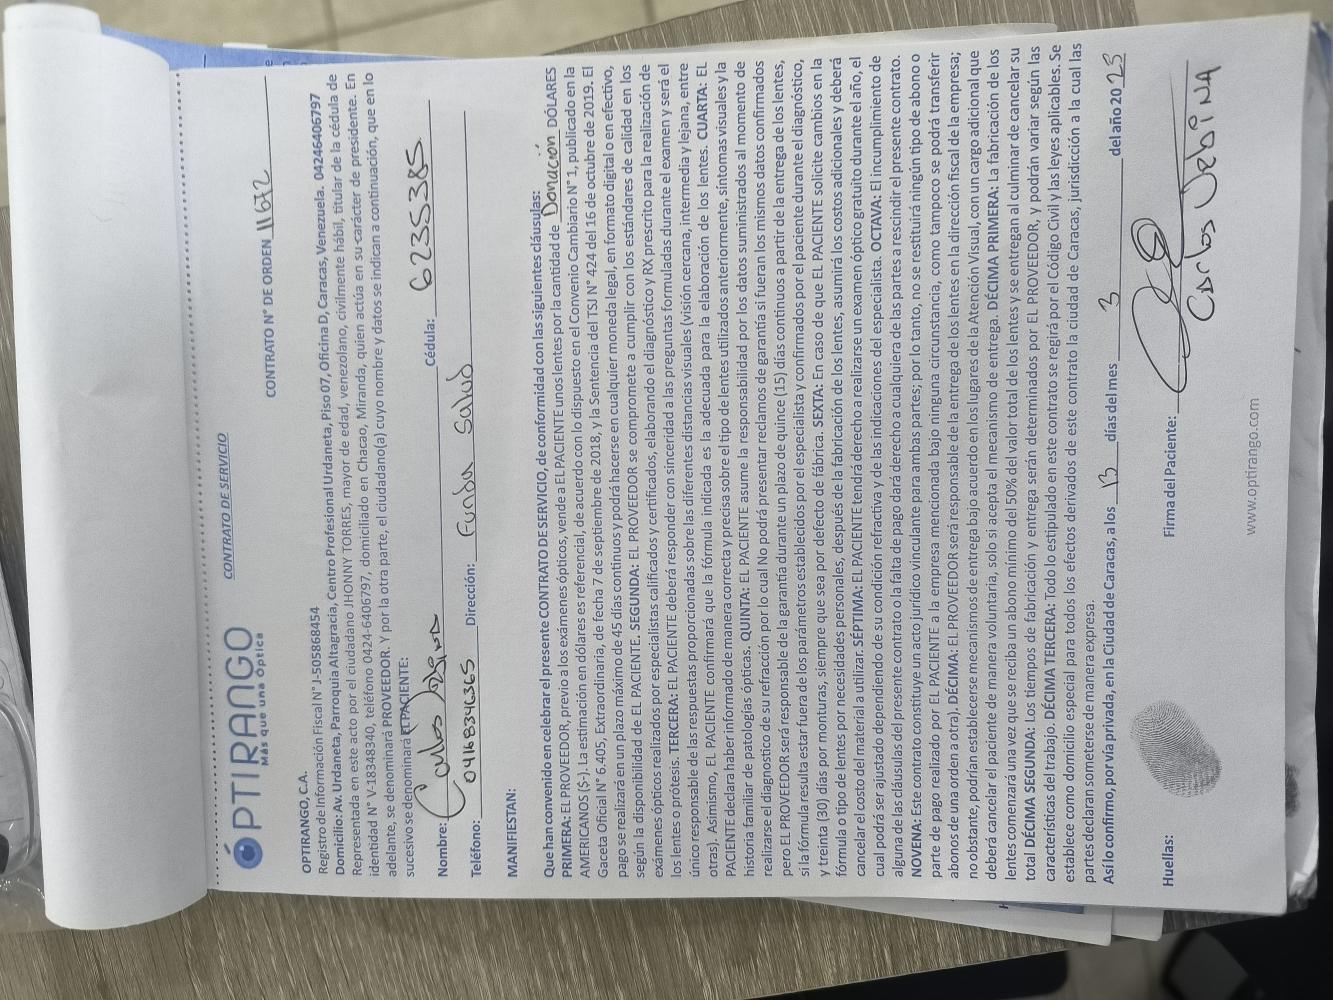 ÓPTIRANGO
Más que una Óptica
CONTRATO DE SERVICIO
CONTRATO N° DE ORDEN 11672
OPTIRANGO, C.A.
Registro de Información Fiscal N° J-505868454
Domicilio: Av. Urdaneta, Parroquia Altagracia, Centro Profesional Urdaneta, Piso 07, Oficina D, Caracas, Venezuela. 04246406797
Representada en este acto por el ciudadano JHONNY TORRES, mayor de edad, venezolano, civilmente hábil, titular de la cédula de
identidad N° V-18348340, teléfono 0424-6406797, domiciliado en Chacao, Miranda, quien actúa en su carácter de presidente. En
adelante, se denominará PROVEEDOR. Y por la otra parte, el ciudadano(a) cuyo nombre y datos se indican a continuación, que en lo
sucesivo se denominará EL PACIENTE:
Nombre: Carlos Cédula: 6235385
Teléfono: 04168346365 Dirección: Fundu Salud
MANIFIESTAN:
Que han convenido en celebrar el presente CONTRATO DE SERVICIO, de conformidad con las siguientes cláusulas:
PRIMERA: EL PROVEEDOR, previo a los exámenes ópticos, vende a EL PACIENTE unos lentes por la cantidad de Donación DÓLARES
AMERICANOS ($-). La estimación en dólares es referencial, de acuerdo con lo dispuesto en el Convenio Cambiario N° 1, publicado en la
Gaceta Oficial N° 6.405, Extraordinaria, de fecha 7 de septiembre de 2018, y la Sentencia del TSJ N° 424 del 16 de octubre de 2019. El
pago se realizará en un plazo máximo de 45 días continuos y podrá hacerse en cualquier moneda legal, en formato digital o en efectivo,
según la disponibilidad de EL PACIENTE. SEGUNDA: EL PROVEEDOR se compromete a cumplir con los estándares de calidad en los
exámenes ópticos realizados por especialistas calificados y certificados, elaborando el diagnóstico y RX prescrito para la realización de
los lentes o prótesis. TERCERA: EL PACIENTE deberá responder con sinceridad a las preguntas formuladas durante el examen y será el
único responsable de las respuestas proporcionadas sobre las diferentes distancias visuales (visión cercana, intermedia y lejana, entre
otras). Asimismo, EL PACIENTE confirmará que la fórmula indicada es la adecuada para la elaboración de los lentes. CUARTA: EL
PACIENTE declara haber informado de manera correcta y precisa sobre el tipo de lentes utilizados anteriormente, síntomas visuales y la
historia familiar de patologías ópticas. QUINTA: EL PACIENTE asume la responsabilidad por los datos suministrados al momento de
realizarse el diagnostico de su refracción por lo cual No podrá presentar reclamos de garantía si fueran los mismos datos confirmados
pero EL PROVEEDOR será responsable de la garantía durante un plazo de quince (15) días continuos a partir de la entrega de los lentes,
si la fórmula resulta estar fuera de los parámetros establecidos por el especialista y confirmados por el paciente durante el diagnóstico,
y treinta (30) días por monturas, siempre que sea por defecto de fábrica. SEXTA: En caso de que EL PACIENTE solicite cambios en la
fórmula o tipo de lentes por necesidades personales, después de la fabricación de los lentes, asumirá los costos adicionales y deberá
cancelar el costo del material a utilizar. SÉPTIMA: EL PACIENTE tendrá derecho a realizarse un examen óptico gratuito durante el año, el
cual podrá ser ajustado dependiendo de su condición refractiva y de las indicaciones del especialista. OCTAVA: El incumplimiento de
alguna de las cláusulas del presente contrato o la falta de pago dará derecho a cualquiera de las partes a rescindir el presente contrato.
NOVENA: Este contrato constituye un acto jurídico vinculante para ambas partes; por lo tanto, no se restituirá ningún tipo de abono o
parte de pago realizado por EL PACIENTE a la empresa mencionada bajo ninguna circunstancia, como tampoco se podrá transferir
abonos de una orden a otra). DÉCIMA: EL PROVEEDOR será responsable de la entrega de los lentes en la dirección fiscal de la empresa;
no obstante, podrían establecerse mecanismos de entrega bajo acuerdo en los lugares de la Atención Visual, con un cargo adicional que
deberá cancelar el paciente de manera voluntaria, solo si acepta el mecanismo de entrega. DÉCIMA PRIMERA: La fabricación de los
lentes comenzará una vez que se reciba un abono mínimo del 50% del valor total de los lentes y se entregan al culminar de cancelar su
total DÉCIMA SEGUNDA: Los tiempos de fabricación y entrega serán determinados por EL PROVEEDOR, y podrán variar según las
características del trabajo. DÉCIMA TERCERA: Todo lo estipulado en este contrato se regirá por el Código Civil y las leyes aplicables. Se
establece como domicilio especial para todos los efectos derivados de este contrato la ciudad de Caracas, jurisdicción a la cual las
partes declaran someterse de manera expresa.
Así lo confirmo, por vía privada, en la Ciudad de Caracas, a los 13 días del mes 3 del año 2023
Huellas: Firma del Paciente:
Carlos Urbina
www.optirango.com